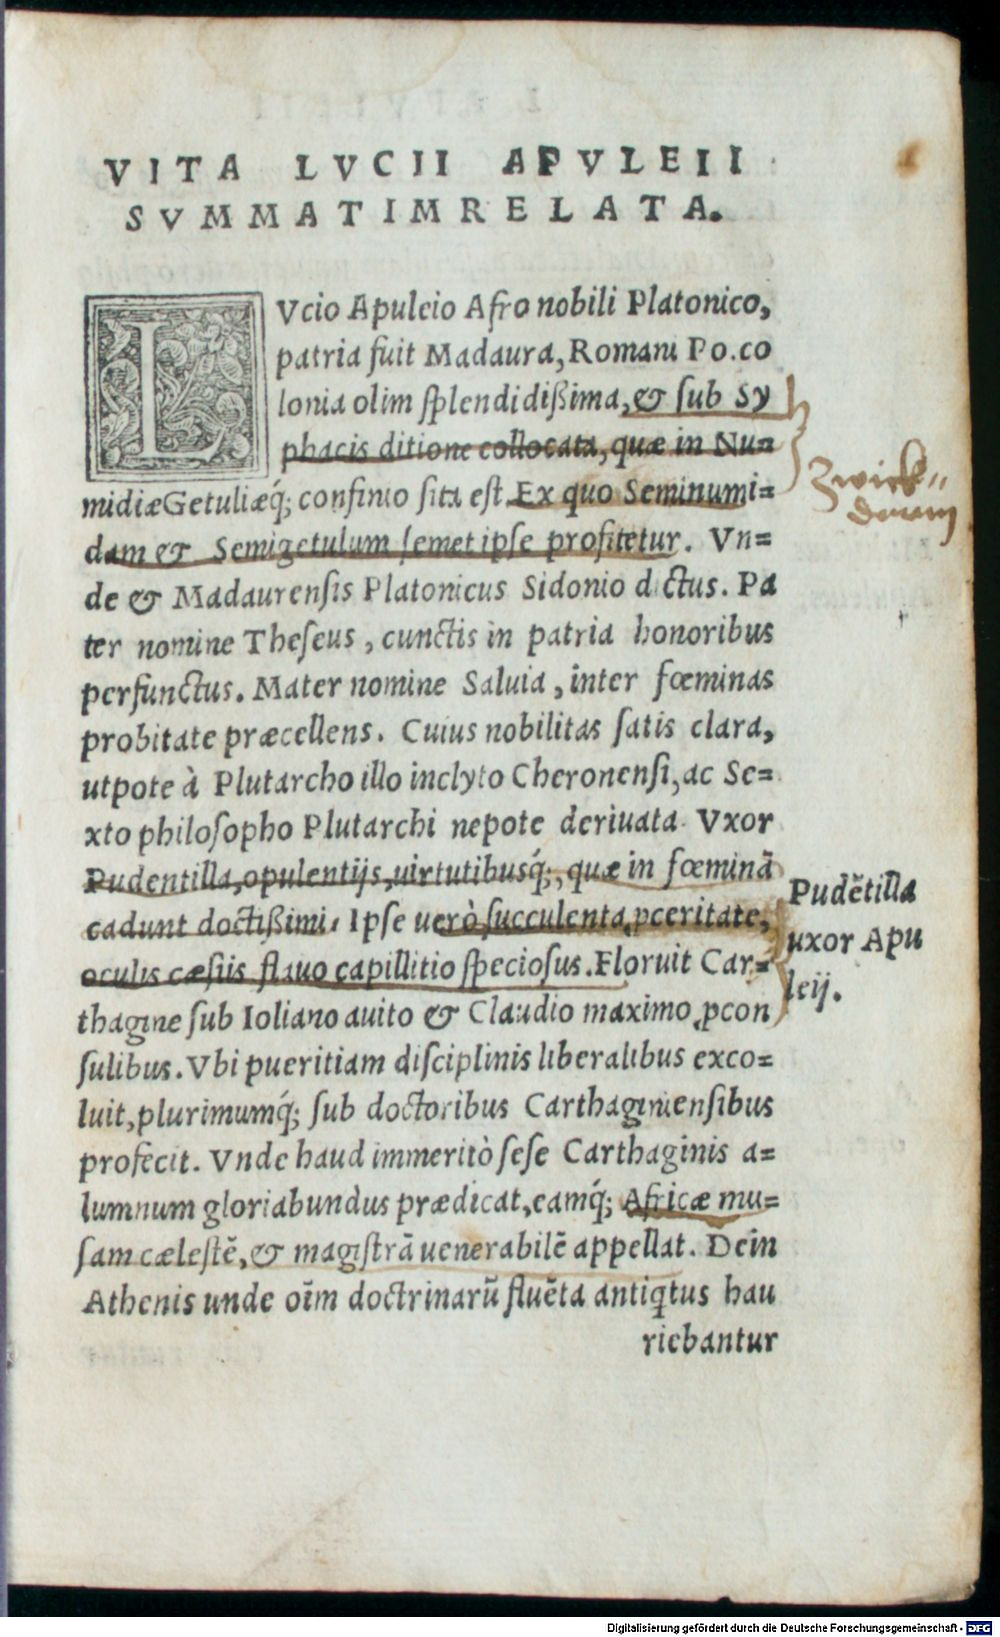 VITA LVCII APVLEII
SVMMATIM RELATA.
LVcio Apuleio Afro nobili Platonico,
patria fuit Madaura, Romani Po. co
lonia olim ſplendidißima, & ſub Sy
phacis ditione collocata, quæ in Nu=
midiæ Getuliæq́; confinio ſita eſt. Ex quo Seminumi=
dam & Semigetulum ſemet ipſe profitetur. Vn=
de & Madaurenſis Platonicus Sidonio dictus. Pa
ter nomine Theſeus, cunctis in patria honoribus
perfunctus. Mater nomine Saluia, inter fœminas
probitate præcellens. Cuius nobilitas ſatis clara,
utpote à Plutarcho illo inclyto Cheronenſi, ac Se=
xto philoſopho Plutarchi nepote deriuata. Vxor
Pudentilla, opulentijs, uirtutibusq́;, quæ in fœminā
cadunt doctißimi. Ipſe uerò ſucculenta ꝓceritate,
oculis cæſiis flauo capillitio ſpecioſus. Floruit Car=
thagine ſub Ioliano auito & Claudio maximo ꝓcon
ſulibus. Vbi pueritiam diſciplinis liberalibus exco=
luit, plurimumq́; ſub doctoribus Carthaginienſibus
profecit. Vnde haud immeritò ſeſe Carthaginis a=
lumnum gloriabundus prædicat, eamq́; Africæ mu=
ſam cæleſtē, & magiſtrā uenerabilē appellat. Dein
Athenis unde oīm doctrinarū fluēta antiqtus hau
riebantur
Zwick=
Pudētilla
uxor Apu
leij.
Digitalisierung gefördert durch die Deutsche Forschungsgemeinschaft - DFG